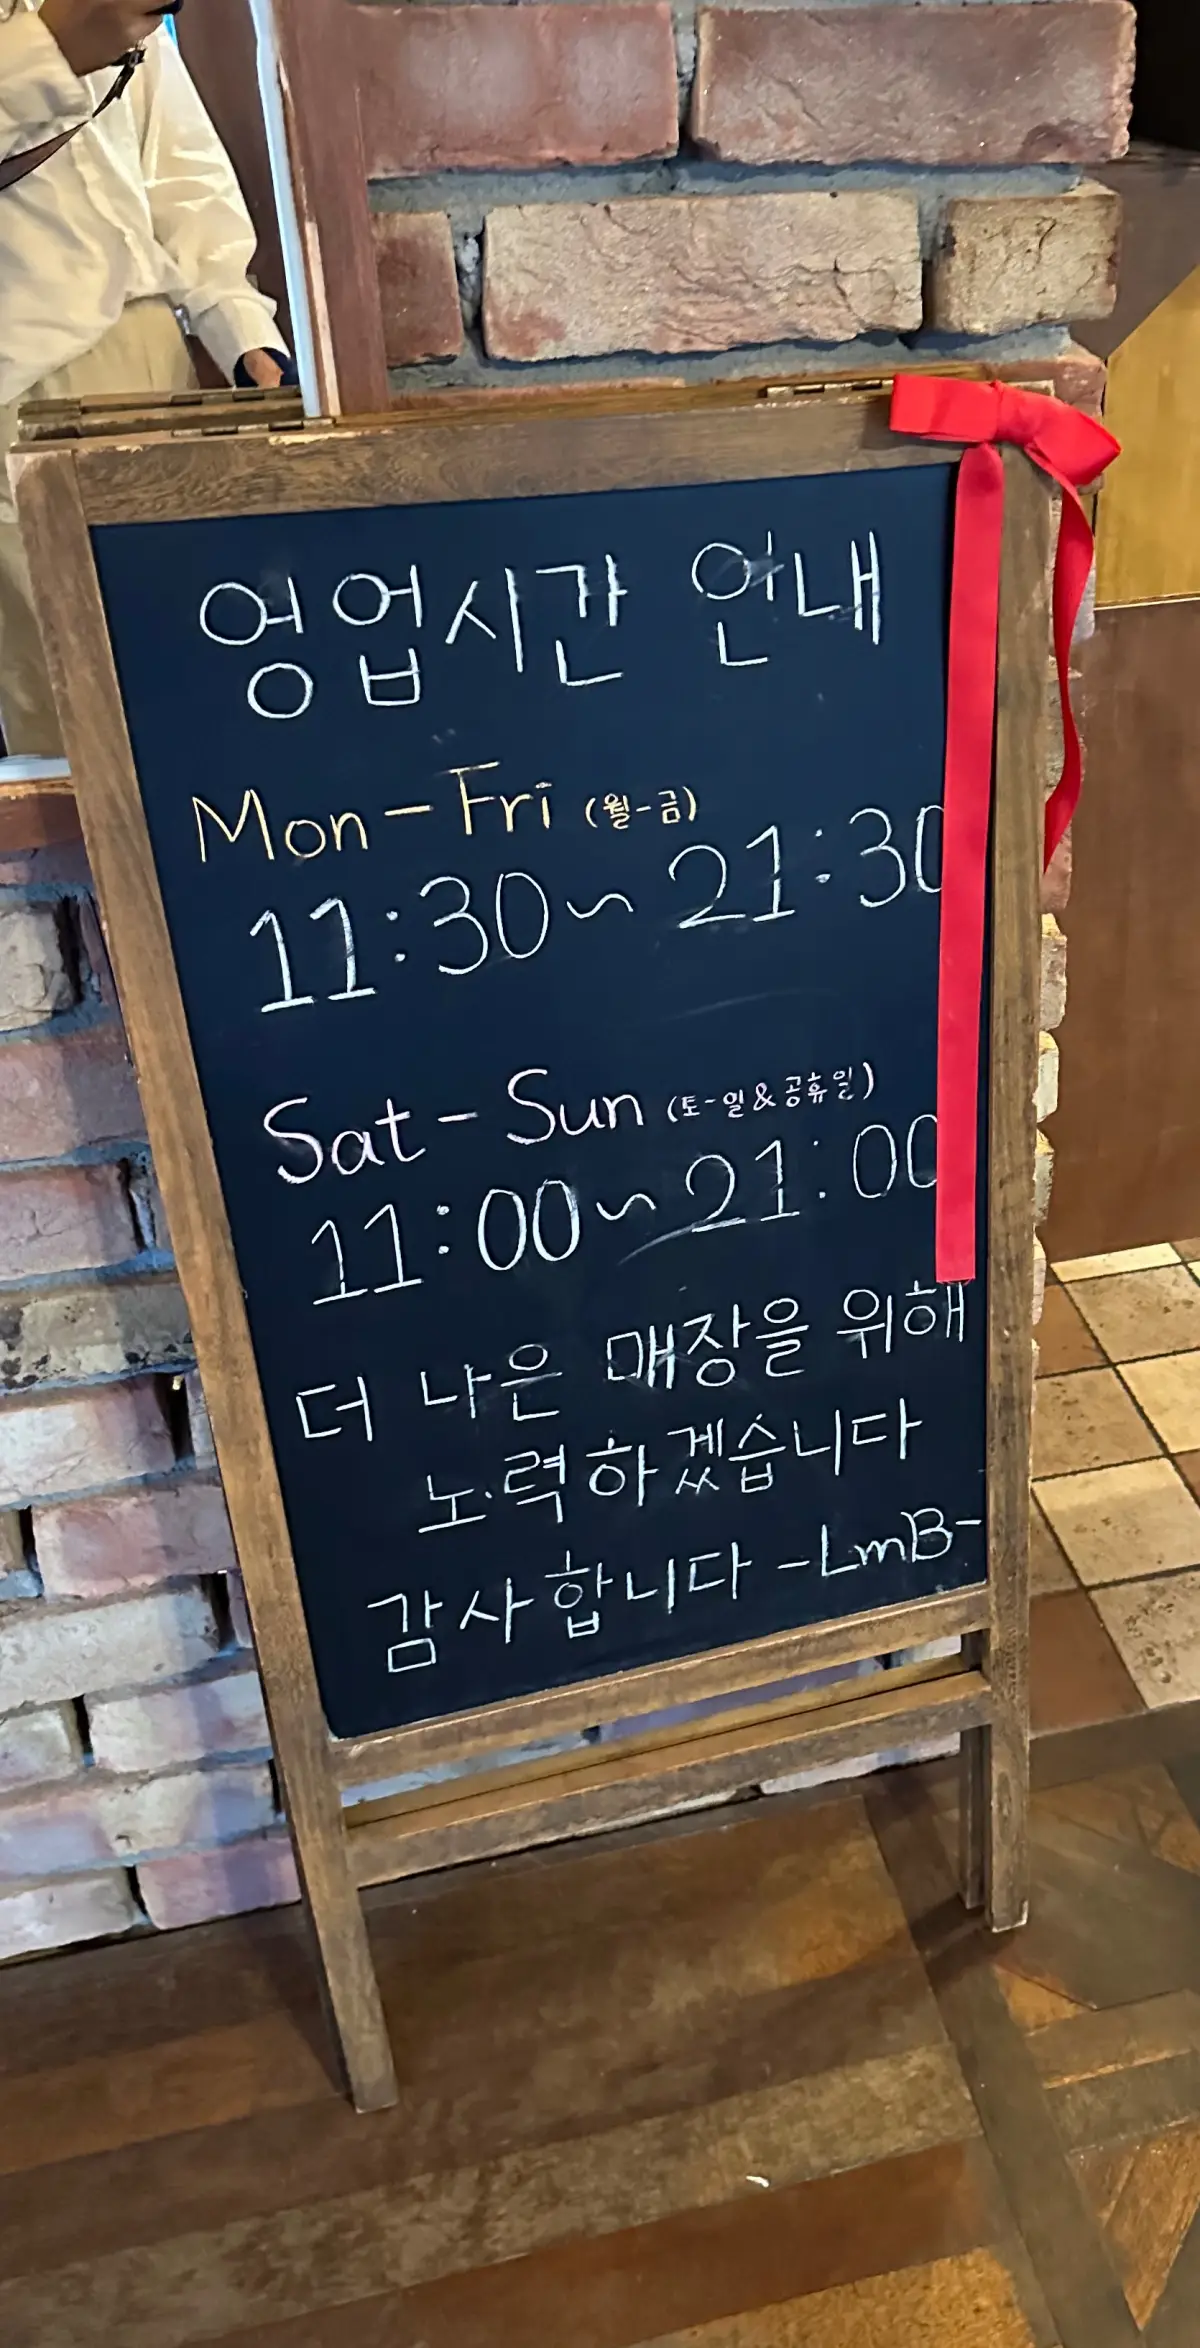 영업시간 안내
Mon-Fri (월-금)
11:30~21:30
Sat-Sun (토-일&공휴일)
11:00~21:00
더 나은 매장을 위해
노력하겠습니다
감사합니다 -LmB-